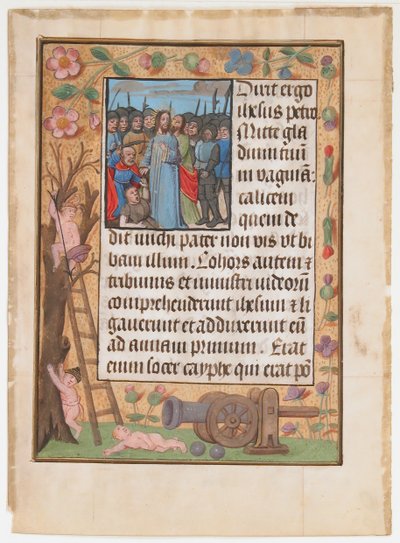 Dixit ergo
ihesus petro.
Mitte gla
dium tuū
in vaginā:
calicem
quem de
dit michi pater non vis vt bi
bam illum. Cohors autem et
tribunus et ministri iudeorū
comprehenderunt ihesum et li
gauerunt et adduxerunt eū
ad annam primum. Erat
enim socer cayphe qui erat pō